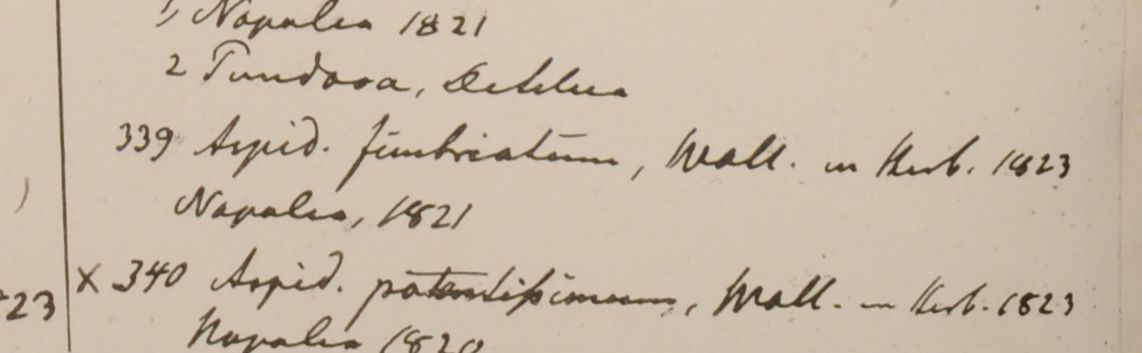 1, Napalia 1821
2 Tundona, Dehlia
339 Aspid. fimbriatum, Wall. in Herb. 1823
Napalia, 1821
X 340 Aspid. patentissimum, Wall. in Herb. 1823
23
Napalia 1820